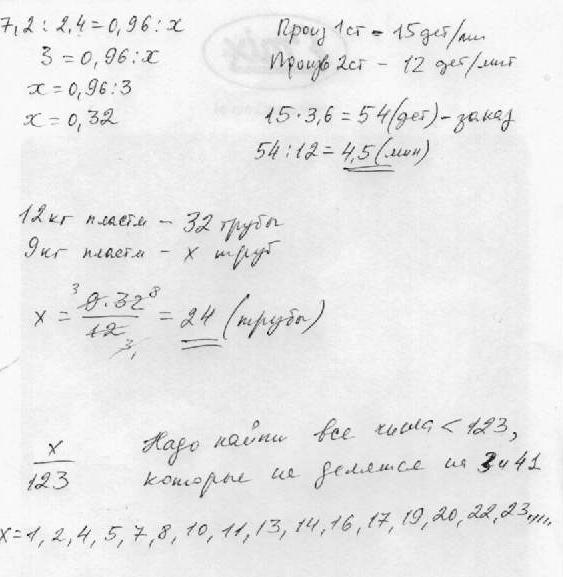 7,2 : 2,4 = 0,96 : x
3 = 0,96 : x
x = 0,96 : 3
x = 0,32
Произ 1 ст = 15 дет/мин
Произв 2 ст - 12 дет/мин
15 · 3,6 = 54 (дет) - заказ
54 : 12 = 4,5 (мин)
12 кг пластм - 32 трубы
9 кг пластм - x труб
x = 9·32 / 12 = 24 (трубы)
x / 123
Надо найти все числа < 123,
которые не делятся на 3 и 41
x = 1, 2, 4, 5, 7, 8, 10, 11, 13, 14, 16, 17, 19, 20, 22, 23,,,,,